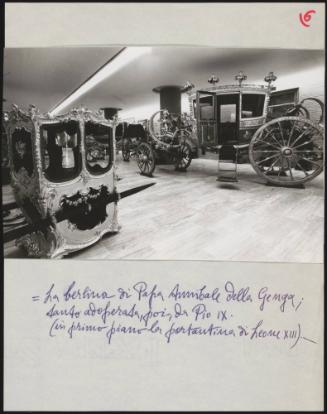 6
= La berlina di Papa Annibale della Genga,
tanto adoperata, poi, da Pio IX.
(in primo piano la portantina di Leone XIII).—